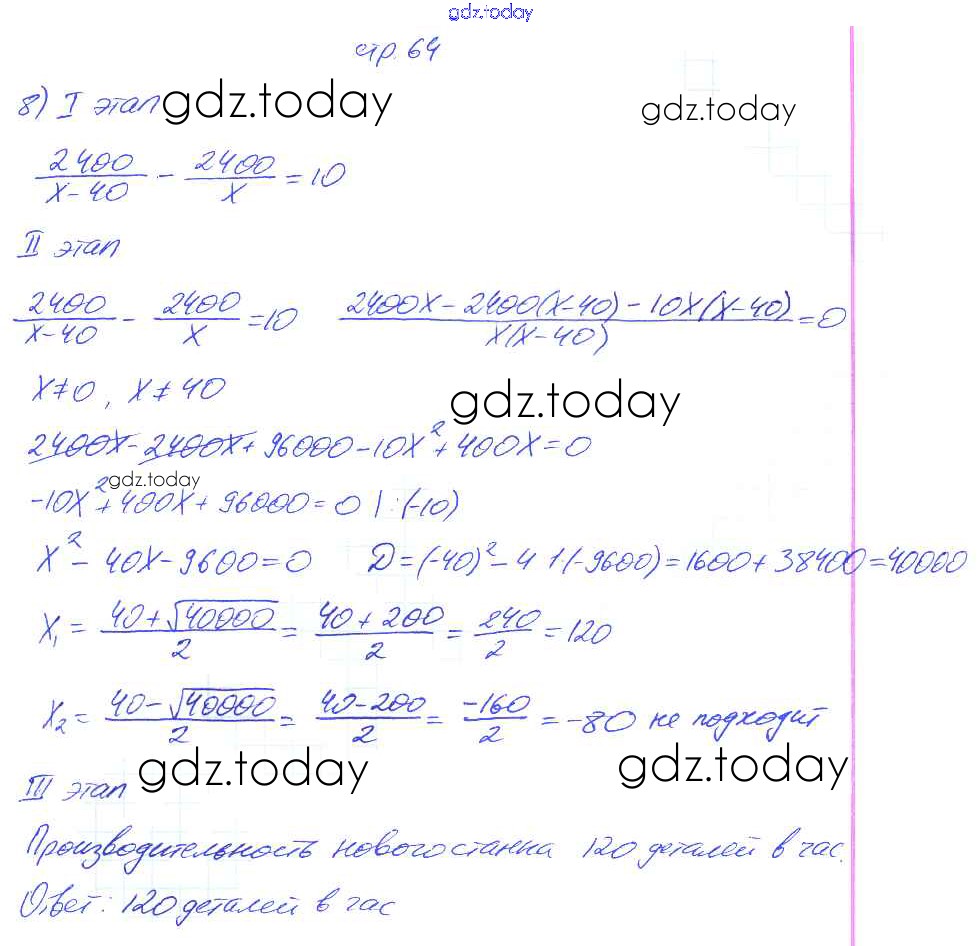 gdz.today
стр. 64
8) I этап gdz.today gdz.today
2400/(x-40) - 2400/x = 10
II этап
2400/(x-40) - 2400/x = 10 (2400x - 2400(x-40) - 10x(x-40))/(x(x-40)) = 0
x≠0, x≠40
gdz.today
2400x - 2400x + 96000 - 10x² + 400x = 0
gdz.today
-10x² + 400x + 96000 = 0 | :(-10)
x² - 40x - 9600 = 0 D = (-40)² - 4 1 (-9600) = 1600 + 38400 = 40000
x₁ = (40 + √40000)/2 = (40 + 200)/2 = 240/2 = 120
x₂ = (40 - √40000)/2 = (40 - 200)/2 = -160/2 = -80 не подходит
gdz.today gdz.today
III этап
Производительность нового станка 120 деталей в час.
Ответ: 120 деталей в час